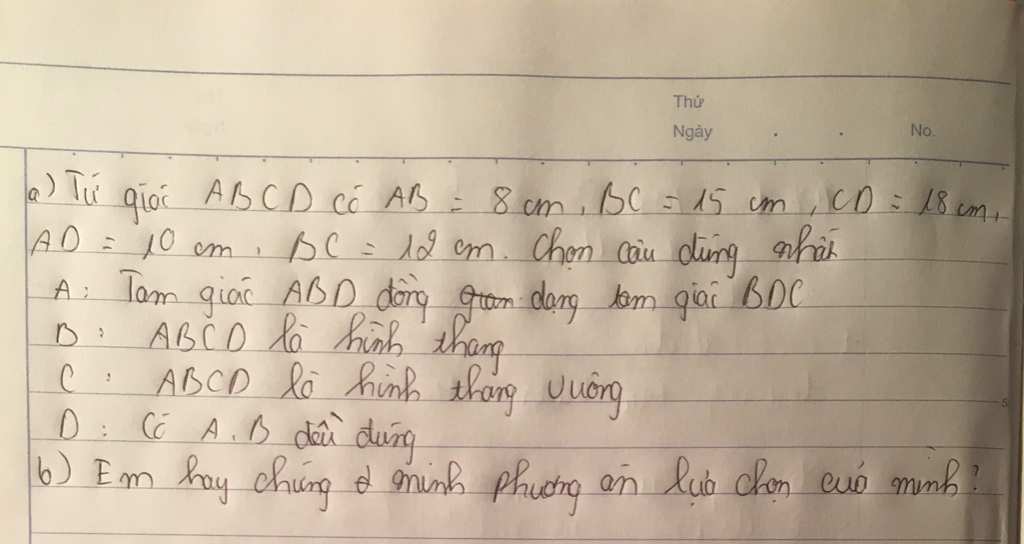 Thứ
Ngày . . No.
a) Tứ giác ABCD có AB = 8 cm, BC = 15 cm, CD = 18 cm,
AD = 10 cm, BC = 12 cm. Chọn câu đúng nhất
A: Tam giác ABD đồng dạng tam giác BDC
B: ABCD là hình thang
C: ABCD là hình thang vuông
D: Cả A, B đều đúng
b) Em hãy chứng minh phương án lựa chọn của mình?